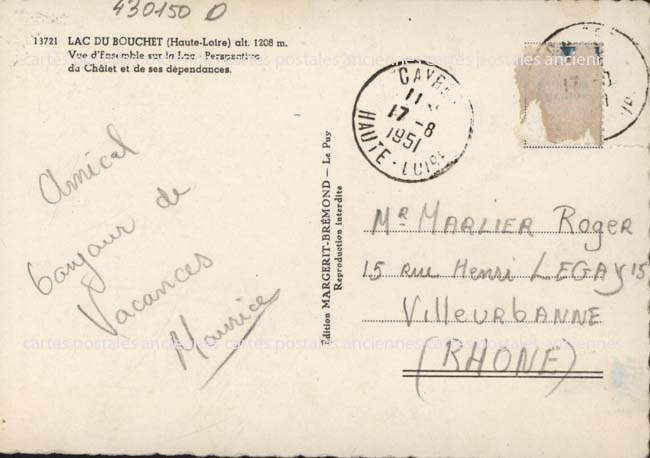 430150 D
13721 LAC DU BOUCHET (Haute-Loire) alt. 1208 m.
Vue d'Ensemble sur le Lac - Perspective
du Châlet et de ses dépendances.
CAYRES
11
17-8
1951
HAUTE-LOIRE
17-8
Amical
bonjour de
Vacances
Maurice
Édition MARGERIT-BRÉMOND — Le Puy
Reproduction interdite
Mr MARLIER Roger
15 rue Henri LEGAY 15
VilleurbANNE
(RHONE)
cartes postales anciennes cartes postales anciennes cartes postales anciennes
cartes postales anciennes cartes postales anciennes cartes postales anciennes